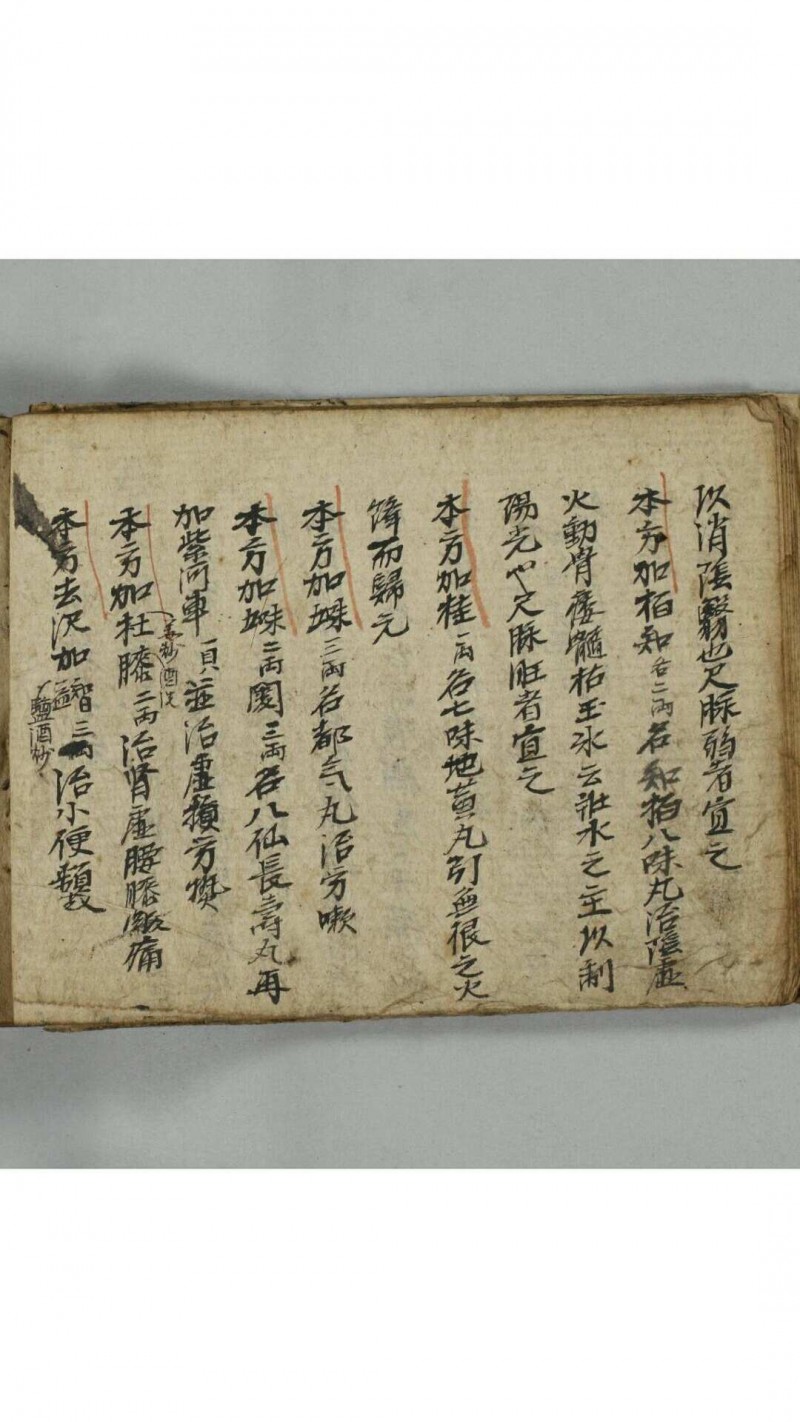 以消陰翳也尺脉弱者宜之
本方加栢知各二兩名知栢八味丸治陰虛
火動骨痿髓枯王冰云壯水之主以制
陽光也尺脉旺者宜之
本方加桂一兩名七味地黃丸引無根之火
降而歸元
本方加味三兩名都气丸治劳嗽
本方加味二兩門三兩名八仙長壽丸再
加紫河車一具並治虛損劳熱
本方加杜膝二兩治肾虛腰膝痠痛
姜炒 酒洗
本方去沢加益智三兩治小便頻數
鹽酒炒